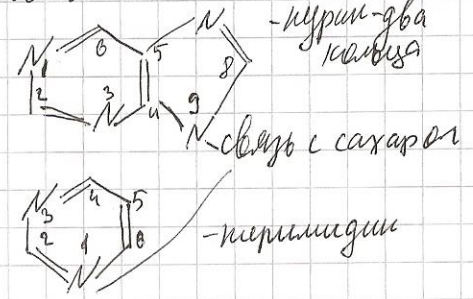 N 1 2 3 N 4 5 6 N 8 9 N
-пурин-два
кольца
связь с сахарол
N 3 4 5 2 1 6 N
-перимидин